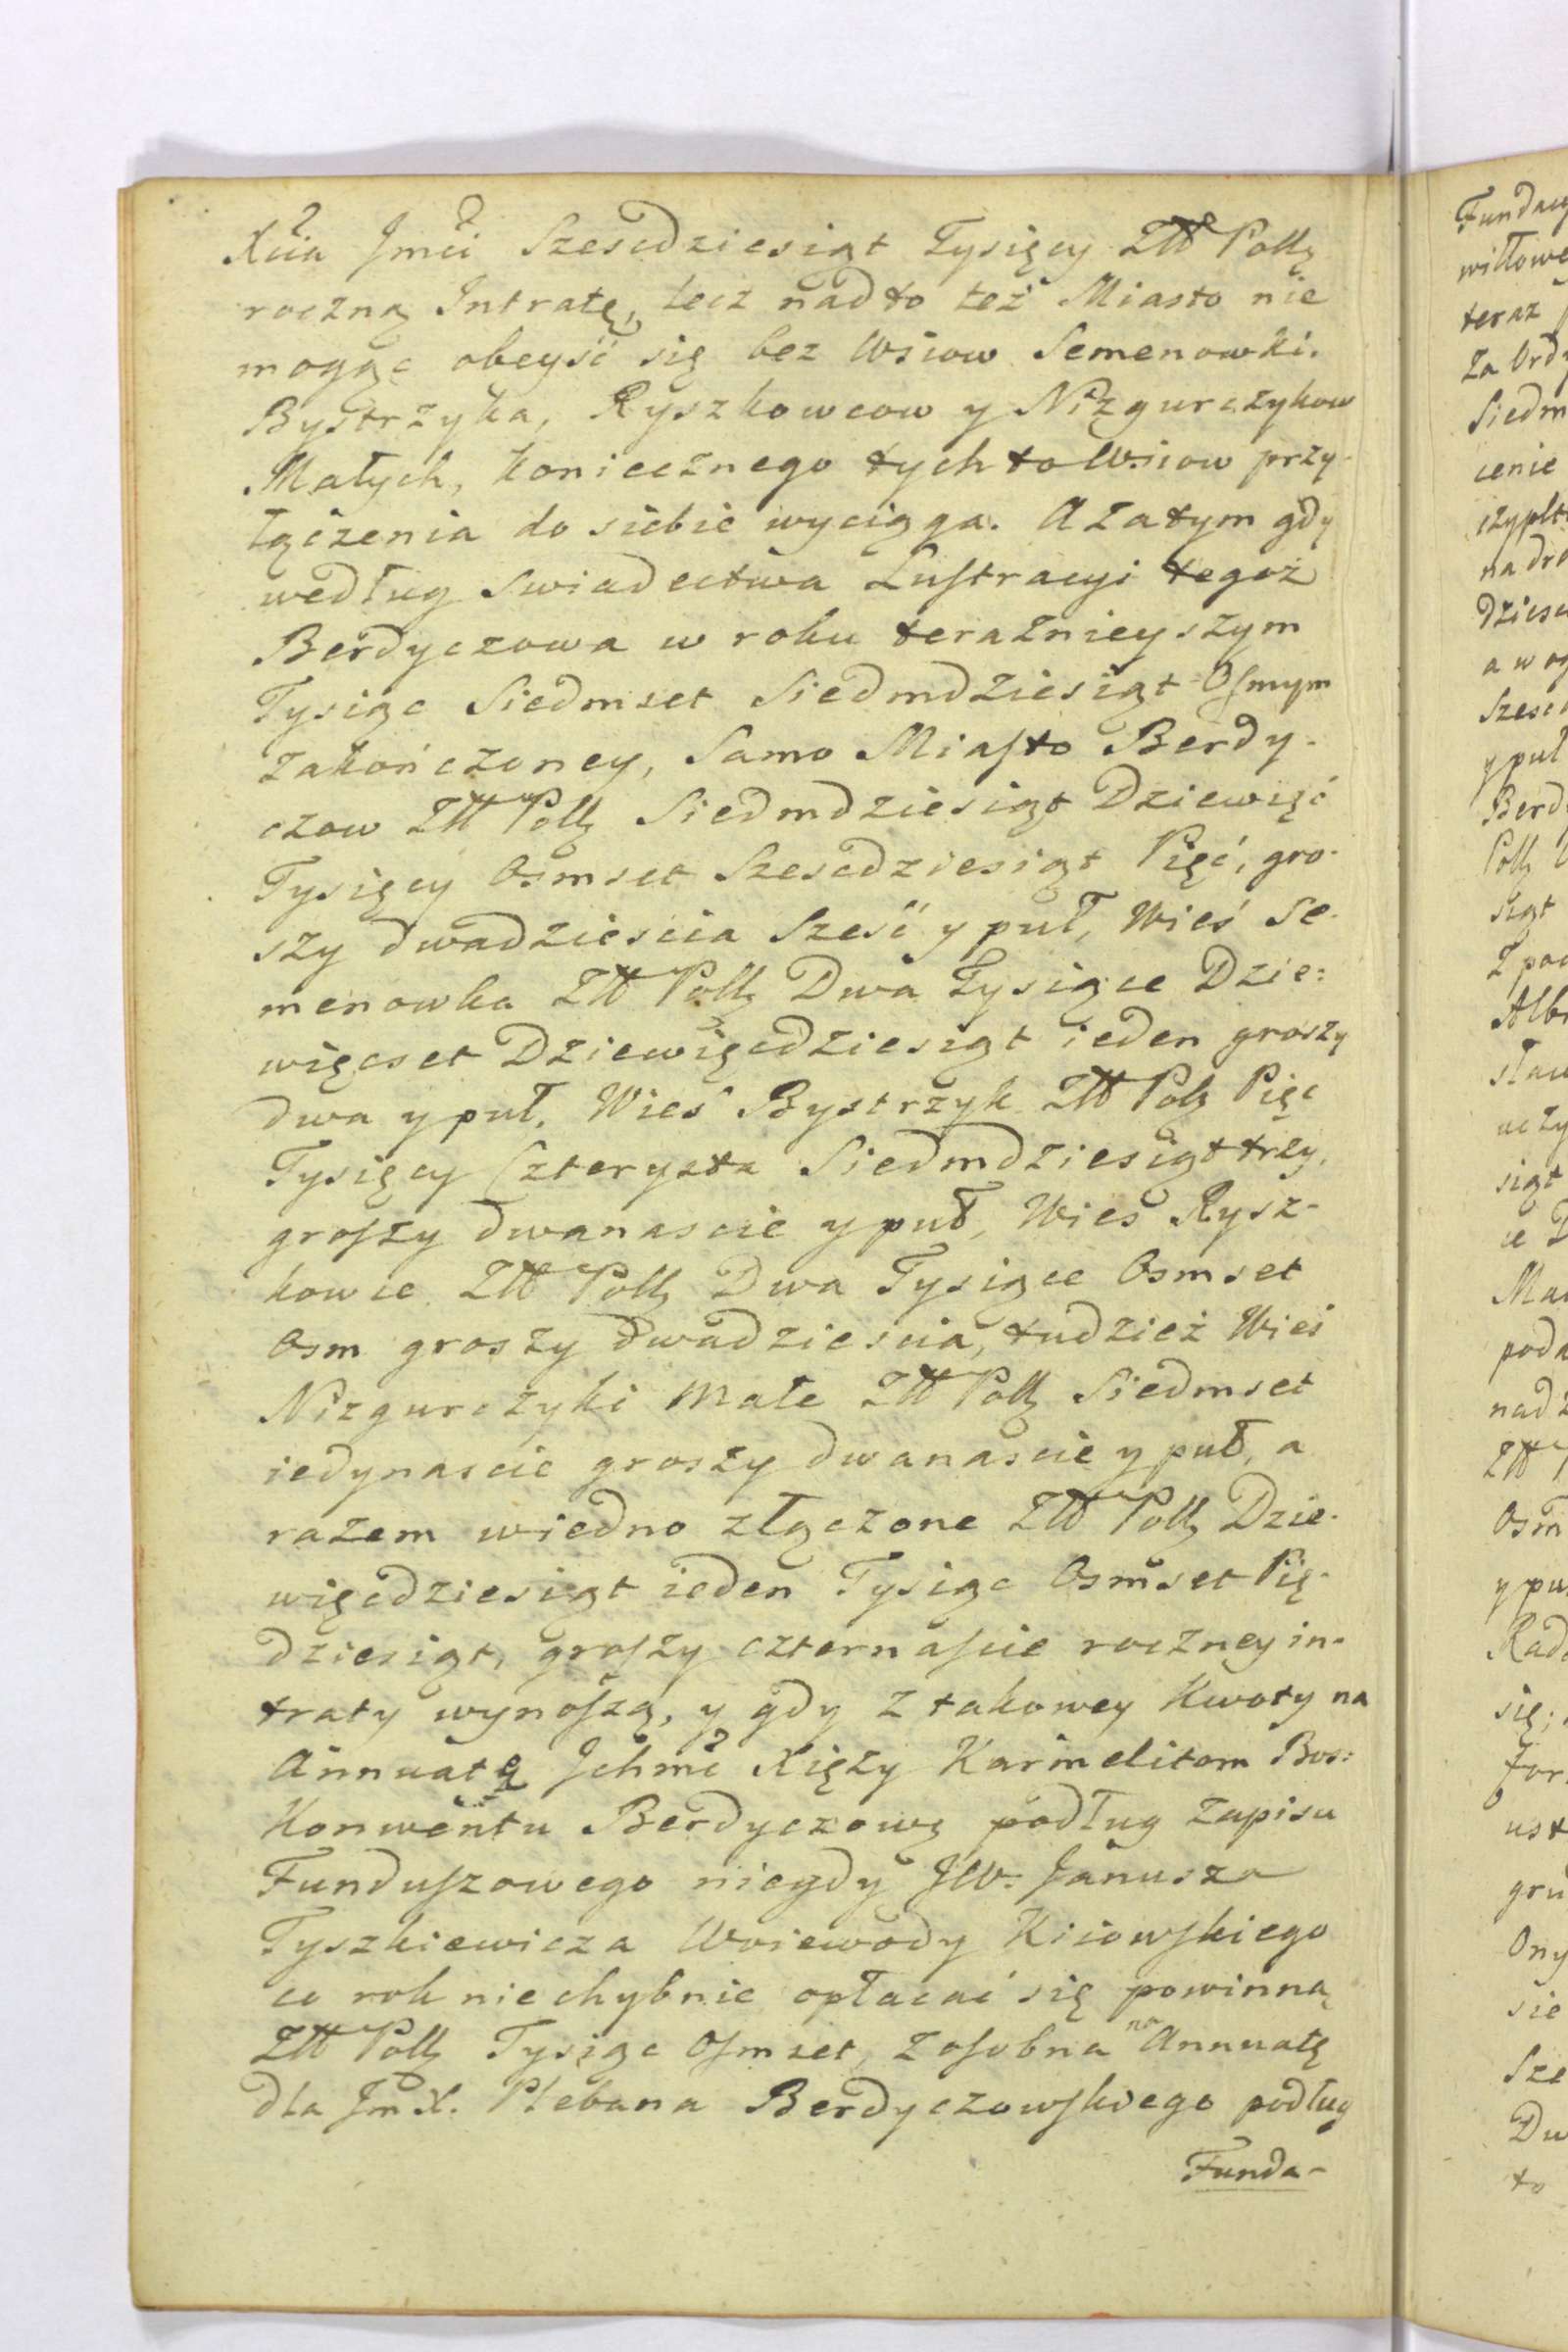 Xcia Jmci Szescdziesiąt Tysięcy Złł Pollą
roczną Intratę, lecz nadto też Miasto nie
mogąc obeyść się bez Wsiow Semenowki.
Bystrzyka, Ryszkowcow y Niżgurczykow
Małych, koniecznego tych to Wsiow przy-
łączenia do siebie wyciąga. A zatym gdy
według swiadectwa Lustracyi tegoż
Berdyczowa w roku teraznieyszym
Tysiąc Siedmset Siedmdziesiąt Osmym
zakończoney, Samo Miasto Berdy-
czow Złł Pollą Siedmdziesiąt Dziewięć
Tysięcy Osmset Szescdziesiąt Pięć, gro-
szy dwadziescia Sześć y puł, Wieś Se-
menowka Złł Pollą Dwa Tysiące Dzie:
więcset Dziewięcdziesiąt ieden groszy
dwa y puł. Wieś Bystrzyk Złł Polą Pięc
Tysięcy Czterysta Siedmdziesiąt trzy,
groszy dwanascie y puł, Wies Rysz-
kowce Złł Pollą Dwa Tysiące Osmset
Osm groszy dwadziescia, tudzież Wieś
Nizgurczyki Małe Złł Pollą Siedmset
iedynascie groszy dwanascie y puł, a
razem wiedno złączone Złł Pollą Dzie-
więcdziesiąt ieden Tysiąc Osmset Pię-
dziesiąt, groszy czternascie roczney in-
traty wynoszą, y gdy z takowey Kwoty na
Annuatę Jchmc Xięży Karmelitom Bos:
Konwentu Berdyczową podług zapisu
Funduszowego niegdy JW. Janusza
Tyszkiewicza Woiewody Kiiowskiego
co rok niechybnie opłacać się powinną
Złł Pollą Tysiąc Osmset, zosobna na Annuatę
dla Jm X. Plebana Berdyczowskiego podług
Funda-